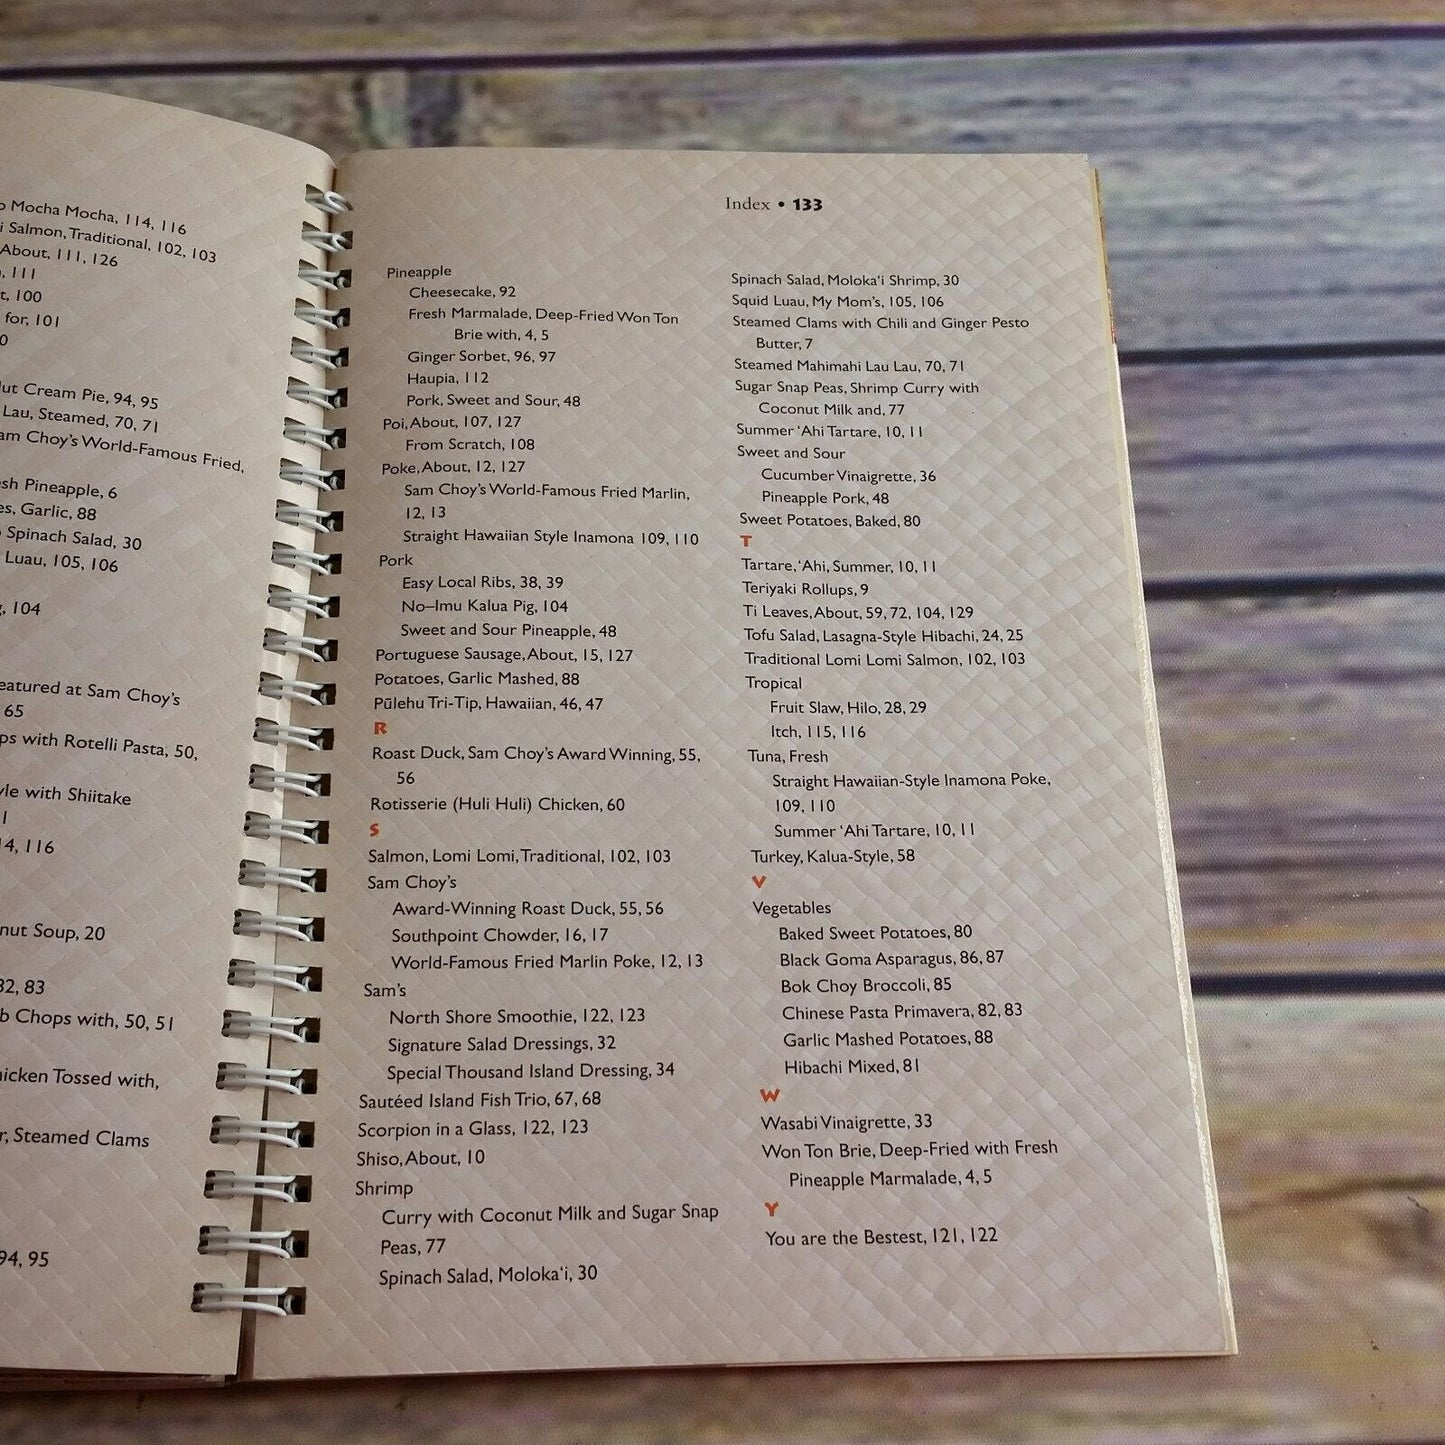 Mocha Mocha, 114, 116
Salmon, Traditional, 102, 103
About, 111, 126
111
100
for, 101
Cream Pie, 94, 95
Lau, Steamed, 70, 71
Choy's World-Famous Fried,
Pineapple, 6
Garlic, 88
Spinach Salad, 30
Luau, 105, 106
104
at Sam Choy's
65
with Rotelli Pasta, 50,
with Shiitake
116
Soup, 20
82, 83
Chops with, 50, 51
Tossed with,
Steamed Clams
94, 95
Index • 133
Pineapple
Cheesecake, 92
Fresh Marmalade, Deep-Fried Won Ton
Brie with, 4, 5
Ginger Sorbet, 96, 97
Haupia, 112
Pork, Sweet and Sour, 48
Poi, About, 107, 127
From Scratch, 108
Poke, About, 12, 127
Sam Choy's World-Famous Fried Marlin,
12, 13
Straight Hawaiian Style Inamona 109, 110
Pork
Easy Local Ribs, 38, 39
No–Imu Kalua Pig, 104
Sweet and Sour Pineapple, 48
Portuguese Sausage, About, 15, 127
Potatoes, Garlic Mashed, 88
Pūlehu Tri-Tip, Hawaiian, 46, 47
R
Roast Duck, Sam Choy's Award Winning, 55,
56
Rotisserie (Huli Huli) Chicken, 60
S
Salmon, Lomi Lomi, Traditional, 102, 103
Sam Choy's
Award-Winning Roast Duck, 55, 56
Southpoint Chowder, 16, 17
World-Famous Fried Marlin Poke, 12, 13
Sam's
North Shore Smoothie, 122, 123
Signature Salad Dressings, 32
Special Thousand Island Dressing, 34
Sautéed Island Fish Trio, 67, 68
Scorpion in a Glass, 122, 123
Shiso, About, 10
Shrimp
Curry with Coconut Milk and Sugar Snap
Peas, 77
Spinach Salad, Moloka‘i, 30
Spinach Salad, Moloka‘i Shrimp, 30
Squid Luau, My Mom's, 105, 106
Steamed Clams with Chili and Ginger Pesto
Butter, 7
Steamed Mahimahi Lau Lau, 70, 71
Sugar Snap Peas, Shrimp Curry with
Coconut Milk and, 77
Summer ‘Ahi Tartare, 10, 11
Sweet and Sour
Cucumber Vinaigrette, 36
Pineapple Pork, 48
Sweet Potatoes, Baked, 80
T
Tartare, ‘Ahi, Summer, 10, 11
Teriyaki Rollups, 9
Ti Leaves, About, 59, 72, 104, 129
Tofu Salad, Lasagna-Style Hibachi, 24, 25
Traditional Lomi Lomi Salmon, 102, 103
Tropical
Fruit Slaw, Hilo, 28, 29
Itch, 115, 116
Tuna, Fresh
Straight Hawaiian-Style Inamona Poke,
109, 110
Summer ‘Ahi Tartare, 10, 11
Turkey, Kalua-Style, 58
V
Vegetables
Baked Sweet Potatoes, 80
Black Goma Asparagus, 86, 87
Bok Choy Broccoli, 85
Chinese Pasta Primavera, 82, 83
Garlic Mashed Potatoes, 88
Hibachi Mixed, 81
W
Wasabi Vinaigrette, 33
Won Ton Brie, Deep-Fried with Fresh
Pineapple Marmalade, 4, 5
Y
You are the Bestest, 121, 122